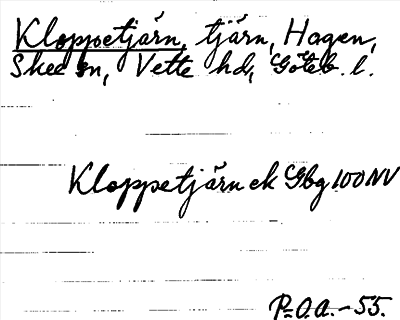 Kloppetjärn, tjärn, Hagen,
Skee sn, Vette hd, Göteb. l.
Kloppetjärn ek Gbg 100 NV
P-O.A.-55.